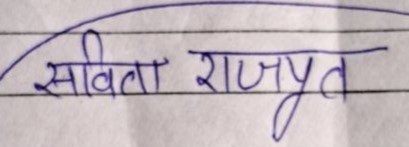 सविता राजपूत